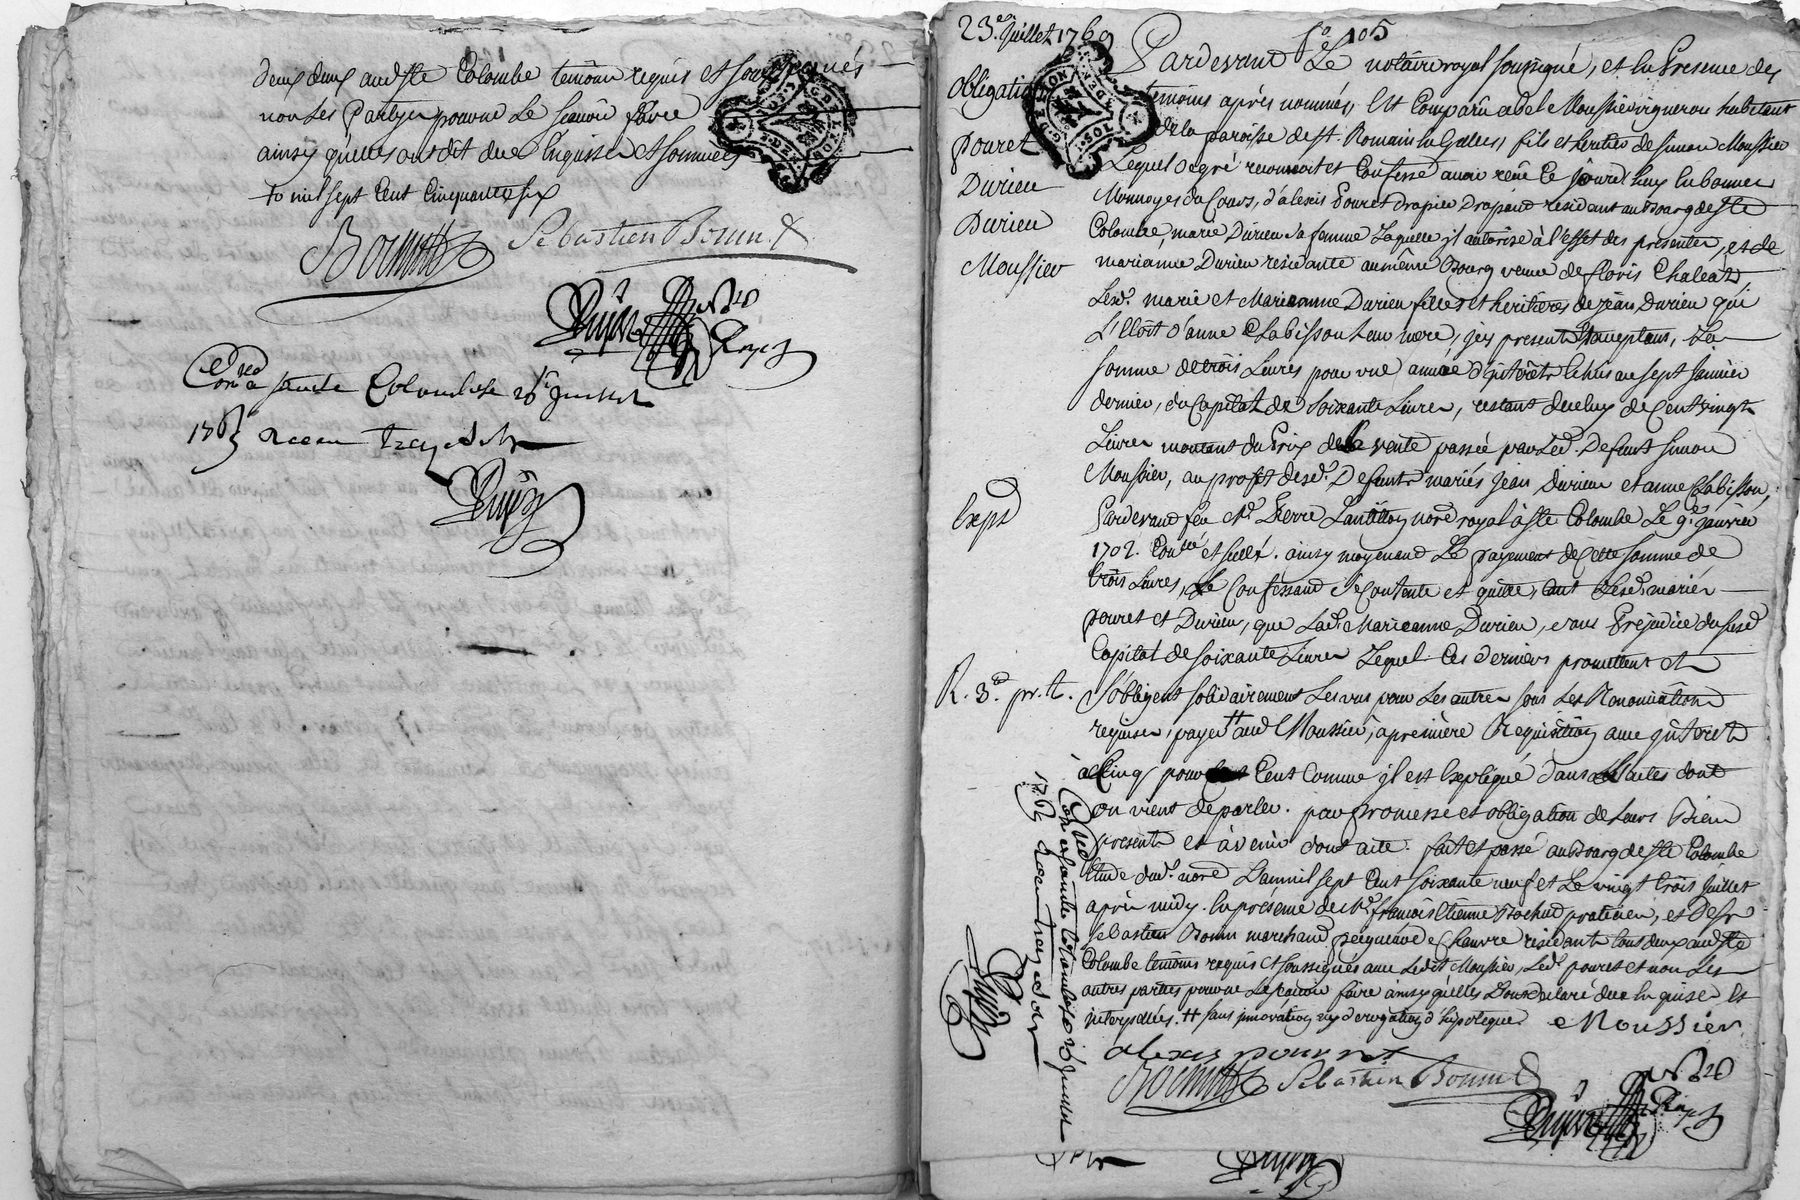 deux deux aud Ste Colombe temoins requis et soussignés
non les Parties pour ne le scavoir faire
ainsy qu'elles ont dit de enquises et sommées
mil sept Cent Cinquante six
Sebastien Bonin
Con a sainte Colombe le 26 Juillet
176
23e Juillet 1769
fo 105
Obligation
pouret
Durieu
Durieu
Moussier
Pardevant Le notaire royal soussigné, et en Presence des
temoins après nommés, Est Comparû abel Moussier vigneron habitant
de la paroisse de St. Romain en Galles, fils et heritier de simon Moussier
Lequel de gré reconnoit et Confesse avoir reçu Ce jourd'huy en bonnes
Monnoyes du Cours, d'alexis Pouret drapier Drapant residant au Bourg de Ste
Colombe, marie Durieu sa femme Laquelle il autorise à l'effet des presentes, et de
marianne Durieu residante au même Bourg veuve de floris Chaleat
Lesd. marie et Marianne Durieu filles et heritières de jean Durieu qui
L'Etoit d'anne Chabisson Leur mere, jcy presents et acceptans, La
somme de trois Livres pour une année d'jnterêts Echus au sept Janvier
dernier, du Capital de soixante Livres, restant de celuy de Cent vingt
Livres montant du Prix de la vente passée par Led. Defunt simon
Moussier, au profit desd. Defunts mariés jean Durieu et anne Chabisson,
Pardevant feu Me Pierre Lantillon nore royal à Ste Colombe Le 9e janvier
1702. Conlé et scellé. ainsy moyenant Le payement de Cette somme de
trois Livres, Le Confessant se Contente et quitte, tant Lesd. mariés
pouret et Durieu, que Lad. Marieanne Durieu, sans Préjudice du susd
Capital de soixante Livres Lequel Ces derniers promettent et
s'obligent solidairement Les uns pour Les autres sous Les Renonciations
requises, payer # aud Moussier, à première Requisition avec jnterets
à Cinq pour Cent Comme jl est Expliqué dans L'acte dont
on vient de parler. par Promesse et obligation de Leurs Biens
presents et à venir dont acte. fait et passé au Bourg de Ste Colombe
Etude dud. nore L'an mil sept Cent soixante neuf et Le vingt trois Juillet
après midy. En présence de Me françois Etienne Bochud praticien, et de Sr
sebastien Bonin marchand peigneur de Chanvre residants tous deux aud Ste
Colombe temoins requis et soussignés avec Ledit Moussier, Led. pouret et non Les
autres parties pour ne Le scavoir faire ainsy qu'elles L'ont declaré de ce Enquises et
jnterpellées. # sans jnnovation ny derogation d'hipoteque. Moussier
Expd
R. 3s. pr. t.
Con a sainte Colombe le 26 Juillet
176
alexis pouret
Sebastien Bonin